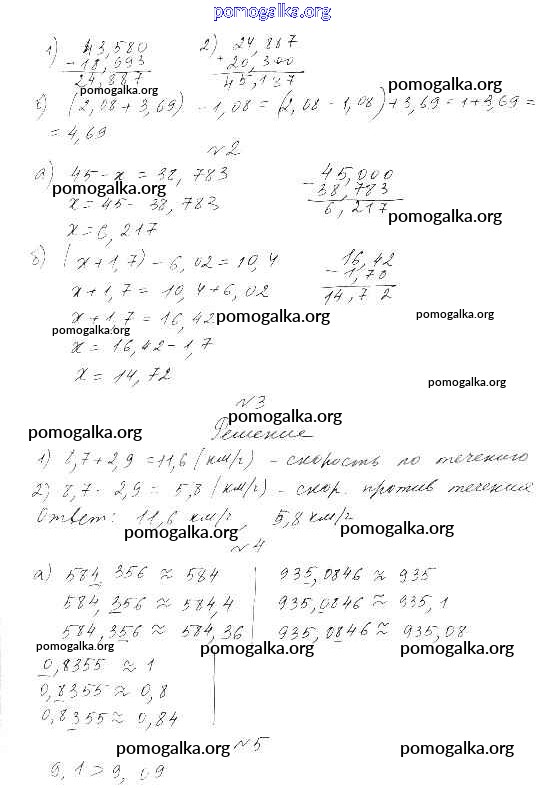 pomogalka.org
1) 43,580 2) 24,887
- 18,693 + 20,300
24,887 45,187
pomogalka.org pomogalka.org
б) (2,08 + 3,69) - 1,08 = (2,08 - 1,08) + 3,69 = 1 + 3,69 =
= 4,69
№2
а) 45 - x = 38,783 45,000
pomogalka.org - 38,783
x = 45 - 38,783 6,217
pomogalka.org
x = 6,217
б) (x + 1,7) - 6,02 = 10,4 16,42
x + 1,7 = 10,4 + 6,02 - 1,70
14,72
x + 1,7 = 16,42 pomogalka.org pomogalka.org
pomogalka.org
x = 16,42 - 1,7
x = 14,72 pomogalka.org
№3
pomogalka.org
pomogalka.org Решение
1) 8,7 + 2,9 = 11,6 (км/г) - скорость по течению
pomogalka.org
2) 8,7 - 2,9 = 5,8 (км/г) - скор. против течения
Ответ: 11,6 км/г, 5,8 км/г
pomogalka.org pomogalka.org
№4
а) 584,356 ≈ 584 935,0846 ≈ 935
584,356 ≈ 584,4 935,0846 ≈ 935,1
584,356 ≈ 584,36 935,0846 ≈ 935,08
pomogalka.org pomogalka.org pomogalka.org
0,8355 ≈ 1
0,8355 ≈ 0,8
0,8355 ≈ 0,84
pomogalka.org №5 pomogalka.org
9,1 > 9,09